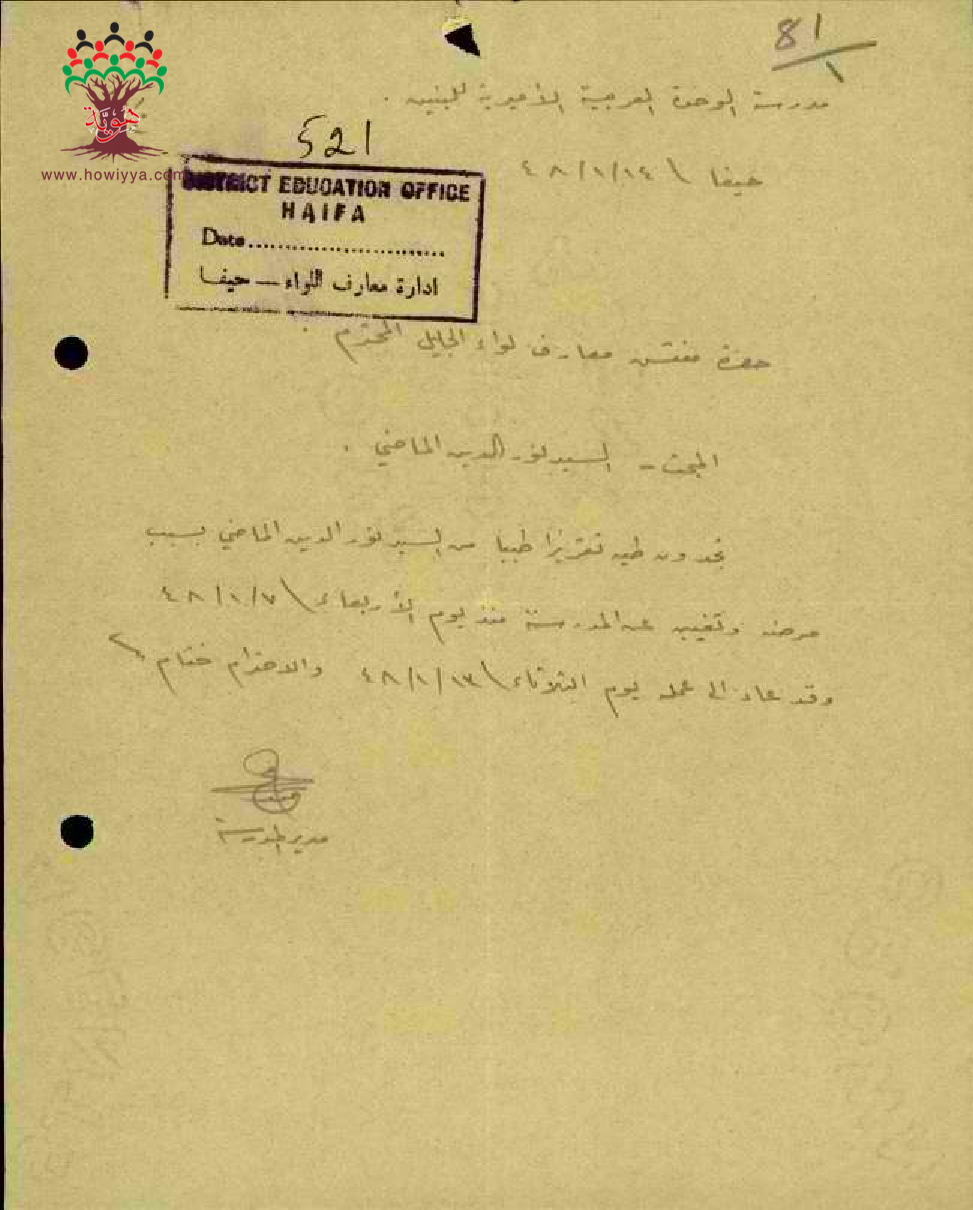 81
1
مدرسة الوحدة العربية الأميرية للبنين.
هويّة
www.howiyya.com
521
حيفا \ ٤٨/١/١٤
DISTRICT EDUCATION OFFICE
HAIFA
Date
ادارة معارف اللواء — حيفا
حضرة مفتش معارف لواء الجليل المحترم.
المبحث - السيد نور الدين الماضي.
تجدون طيه تقريرا طبيا من السيد نور الدين الماضي بسبب
مرضه وتغيبه عن المدرسة منذ يوم الأربعاء \ ٤٨/١/٧
وقد عاد الى عمله يوم الثلاثاء \ ٤٨/١/١٣ والاحترام ختام
مدير المدرسة